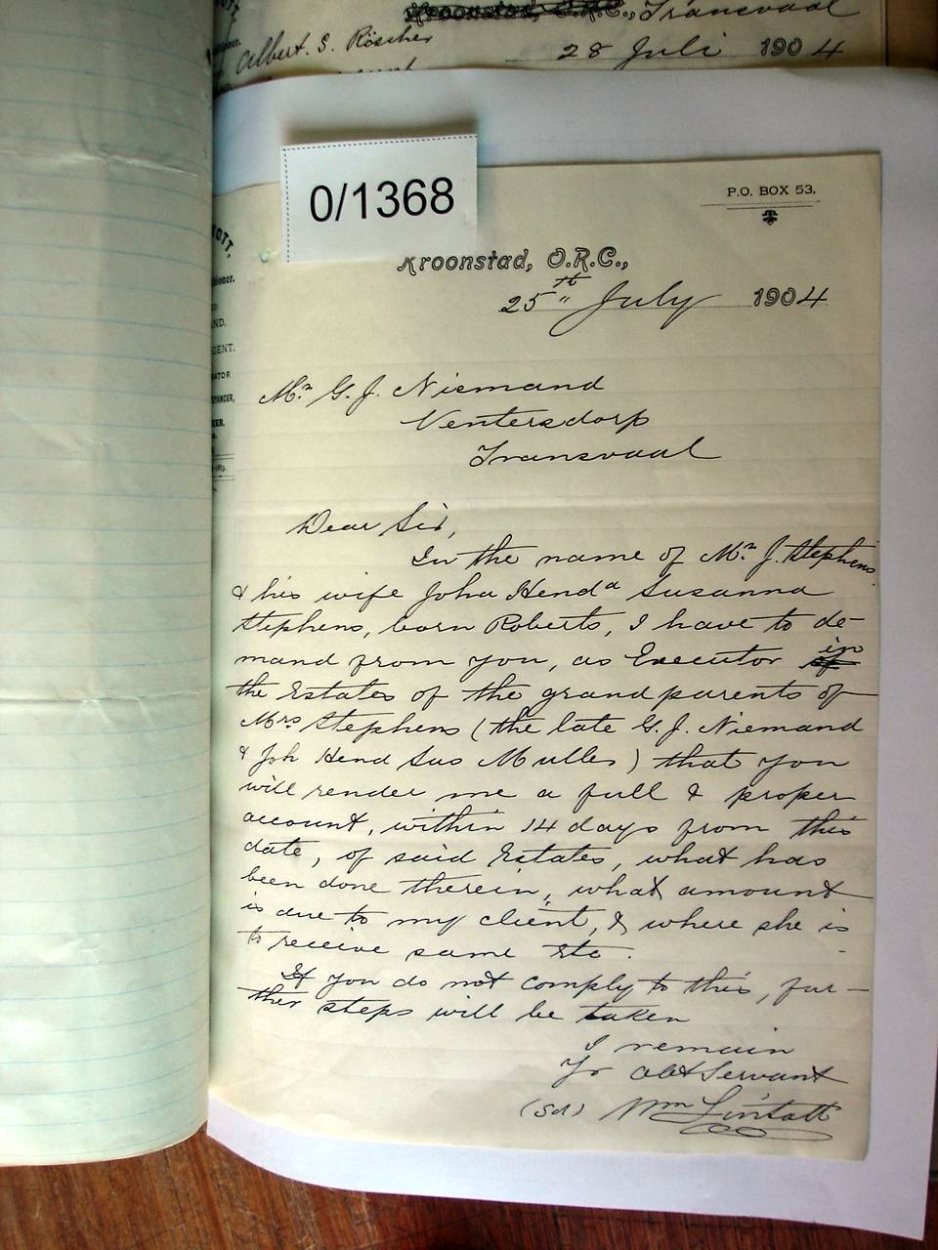 Kroonstad, O.R.C., Transvaal
Albert. S. Röscher
28 Juli 1904
0/1368
P.O. BOX 53.
Kroonstad, O.R.C.,
25th July 1904
OTT,
ioner.
ND.
GENT.
ATOR
Mr. G. J. Niemand
Ventersdorp
Transvaal
Dear Sir,
In the name of Mr. J. Stephens
& his wife Joha Henda Susanna
Stephens, born Roberts, I have to de-
mand from you, as Executor in
the Estates of the grandparents of
Mrs Stephens (the late G. J. Niemand
& Joh Hend Sus Muller) that you
will render me a full & proper
account, within 14 days from this
date, of said Estates, what has
been done therein, what amount
is due to my client, & where she is
to receive same etc.
If you do not comply to this, fur-
ther steps will be taken
I remain
Yr obdt Servant
(sd) Wm